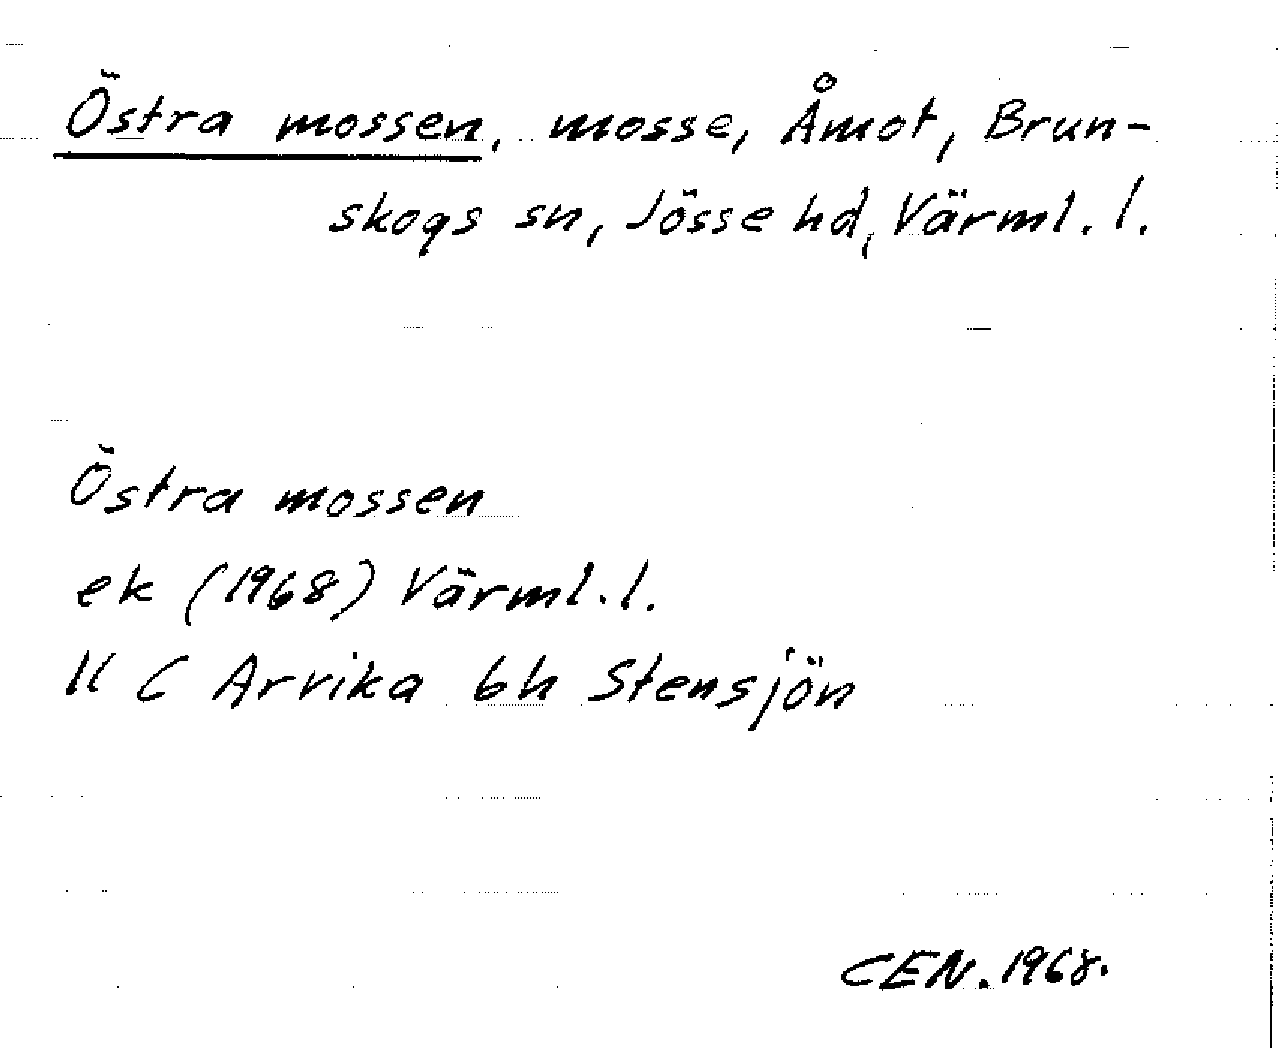 Östra mossen, mosse, Åmot, Brun-
skogs sn, Jösse hd, Värml. l.
Östra mossen
ek (1968) Värml. l.
11 C Arvika 6h Stensjön
CEN. 1968.